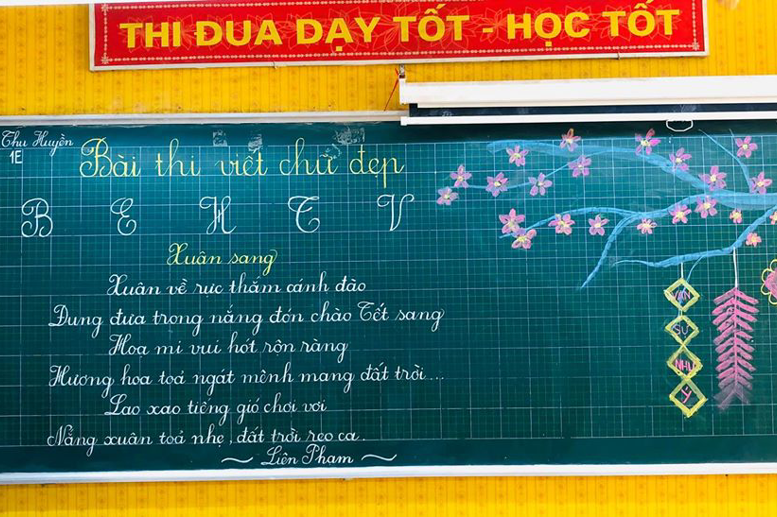 THI ĐUA DẠY TỐT - HỌC TỐT
Thu Huyền
1E
Bài thi viết chữ đẹp
B E H T V
Xuân sang
Xuân về rực thắm cánh đào
Đung đưa trong nắng đón chào Tết sang
Hoạ mi vui hót rộn ràng
Hương hoa toả ngát mênh mang đất trời...
Lao xao tiếng gió chơi vơi
Nắng xuân toả nhẹ, đất trời reo ca.
~ Liên Phạm ~
VẠN
SỰ
NHƯ
Ý